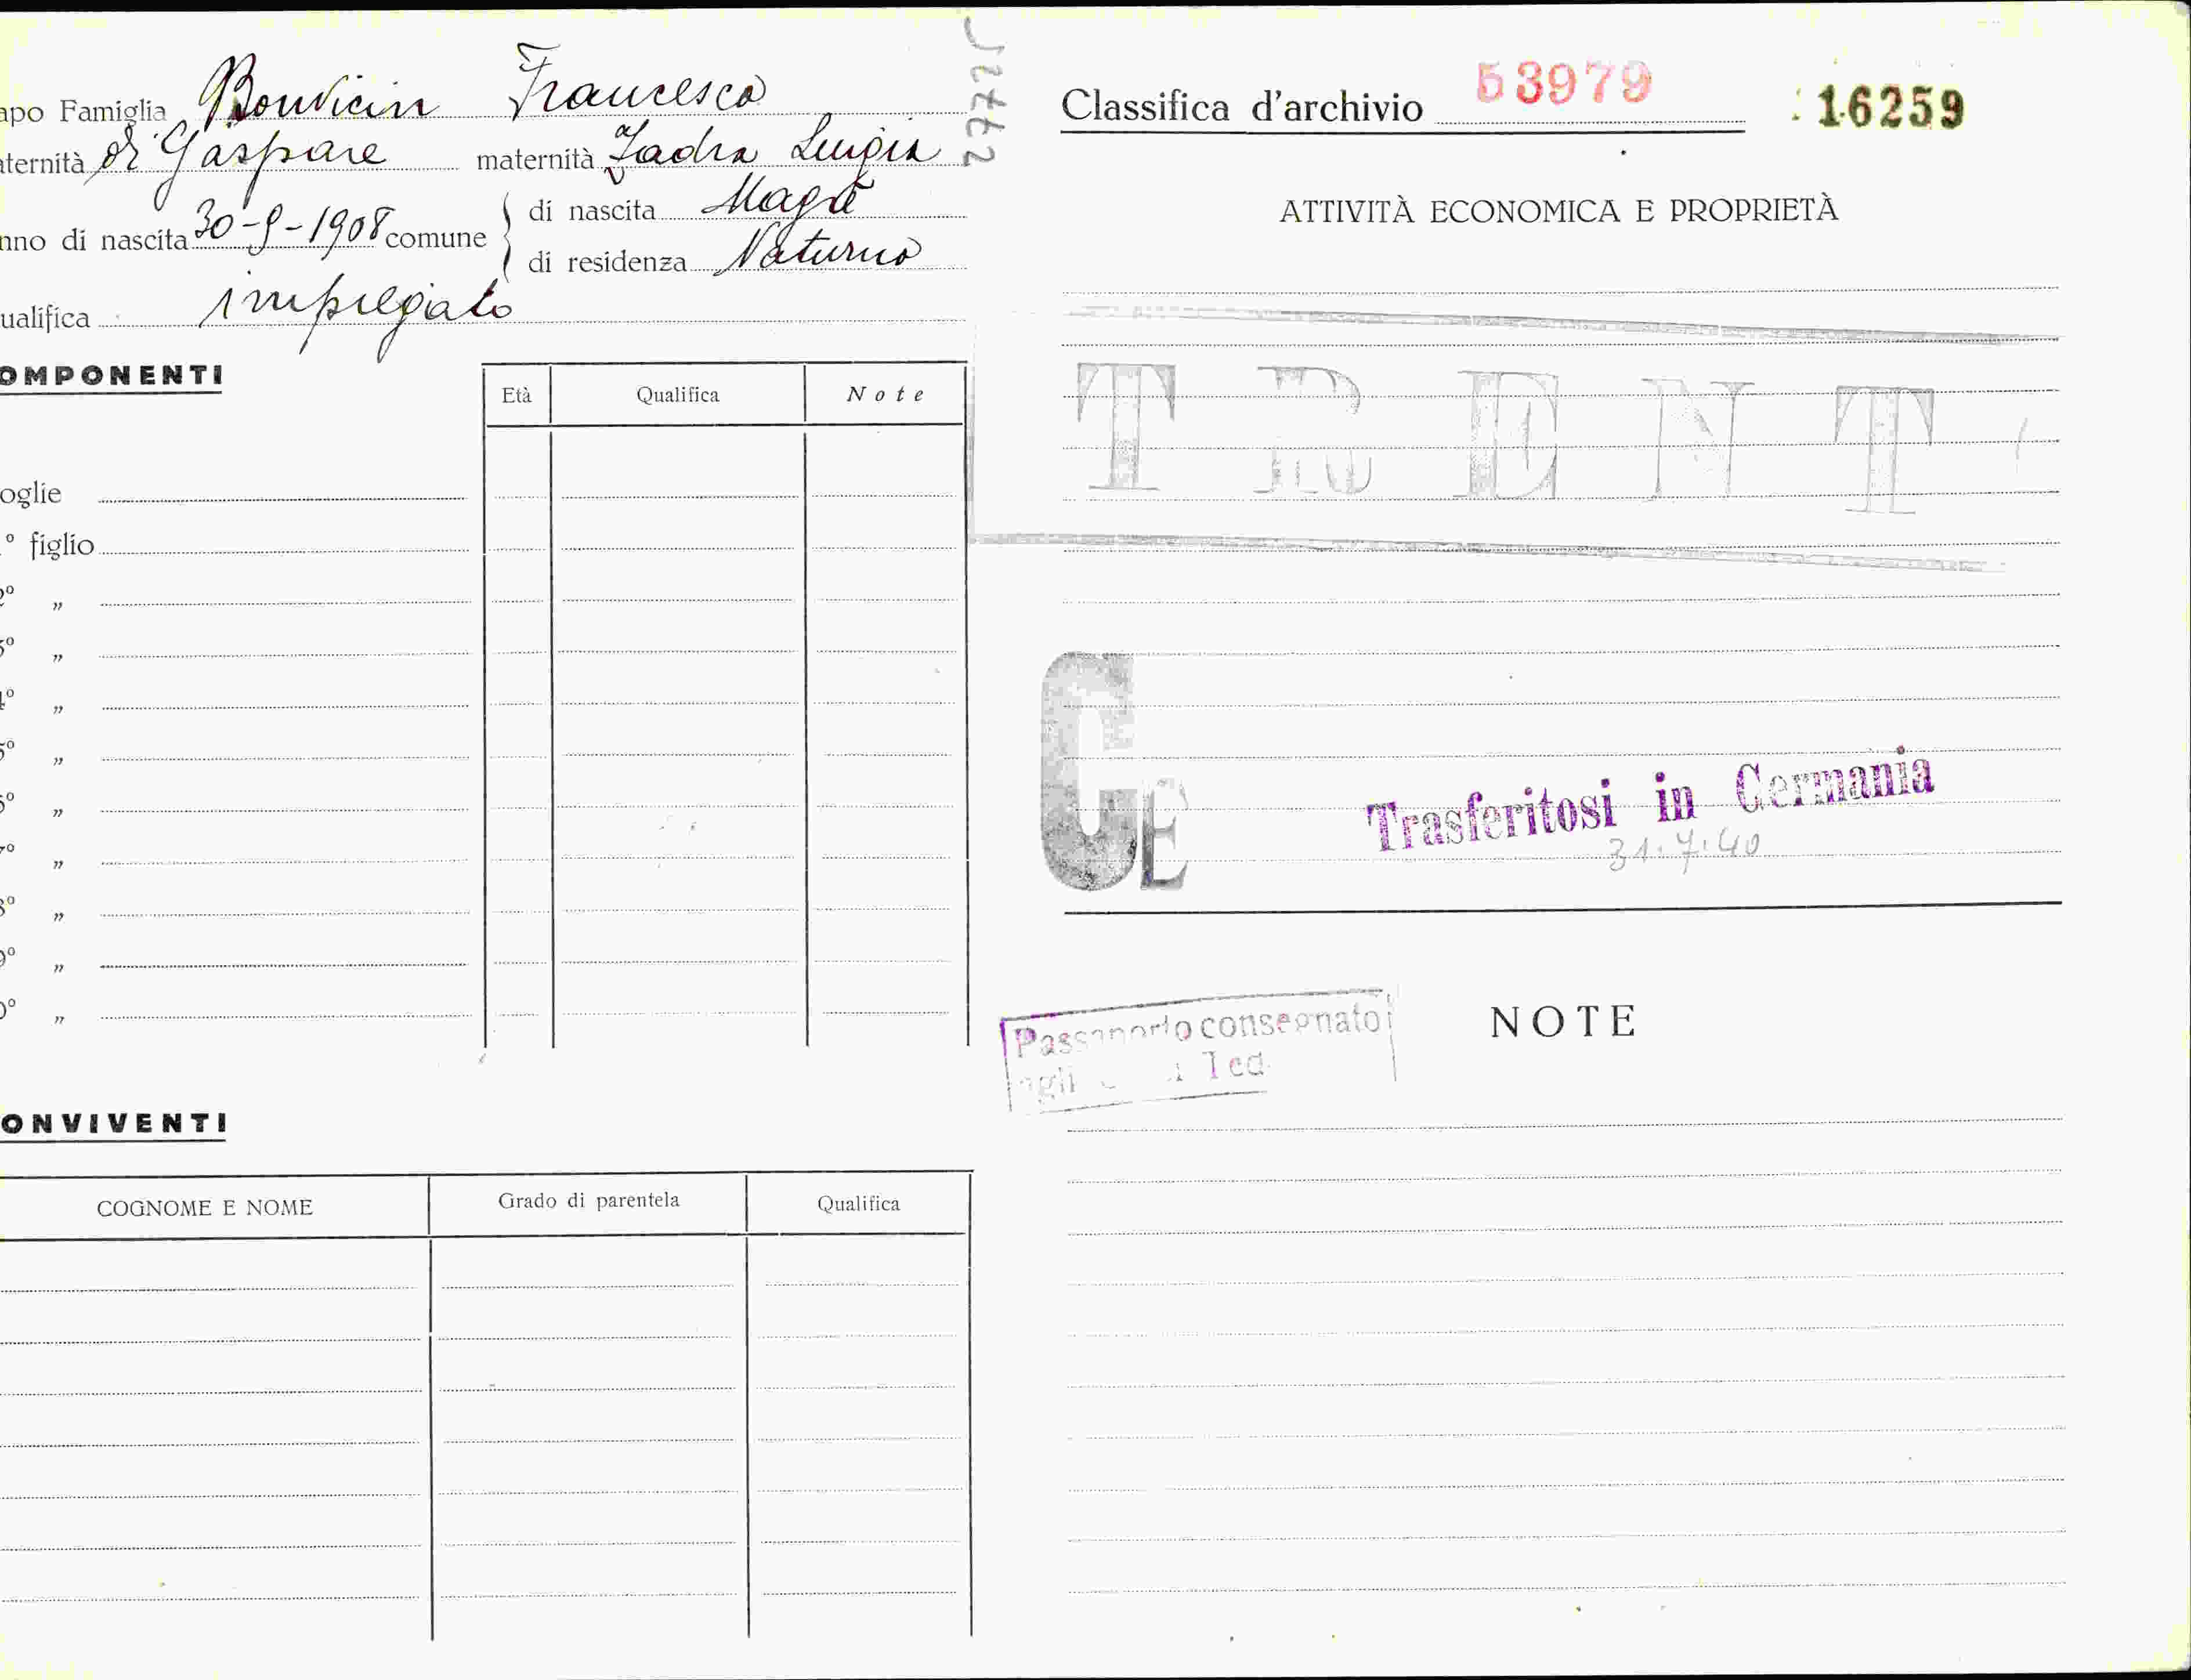 apo Famiglia Bonvicin Francesco
aternità di Gaspare maternità Zadra Luigia
nno di nascita 30-9-1908 comune di nascita Magrè
di residenza Naturno
ualifica impiegato
OMPONENTI
Età Qualifica Note
oglie
° figlio
2° "
3° "
4° "
5° "
6° "
7° "
8° "
9° "
0° "
ONVIVENTI
COGNOME E NOME Grado di parentela Qualifica
Classifica d'archivio 53979 16259
ATTIVITÀ ECONOMICA E PROPRIETÀ
TRENT
CE
Trasferitosi in Germania
31.7.40
Passaporto consegnato
agli Ted.
NOTE